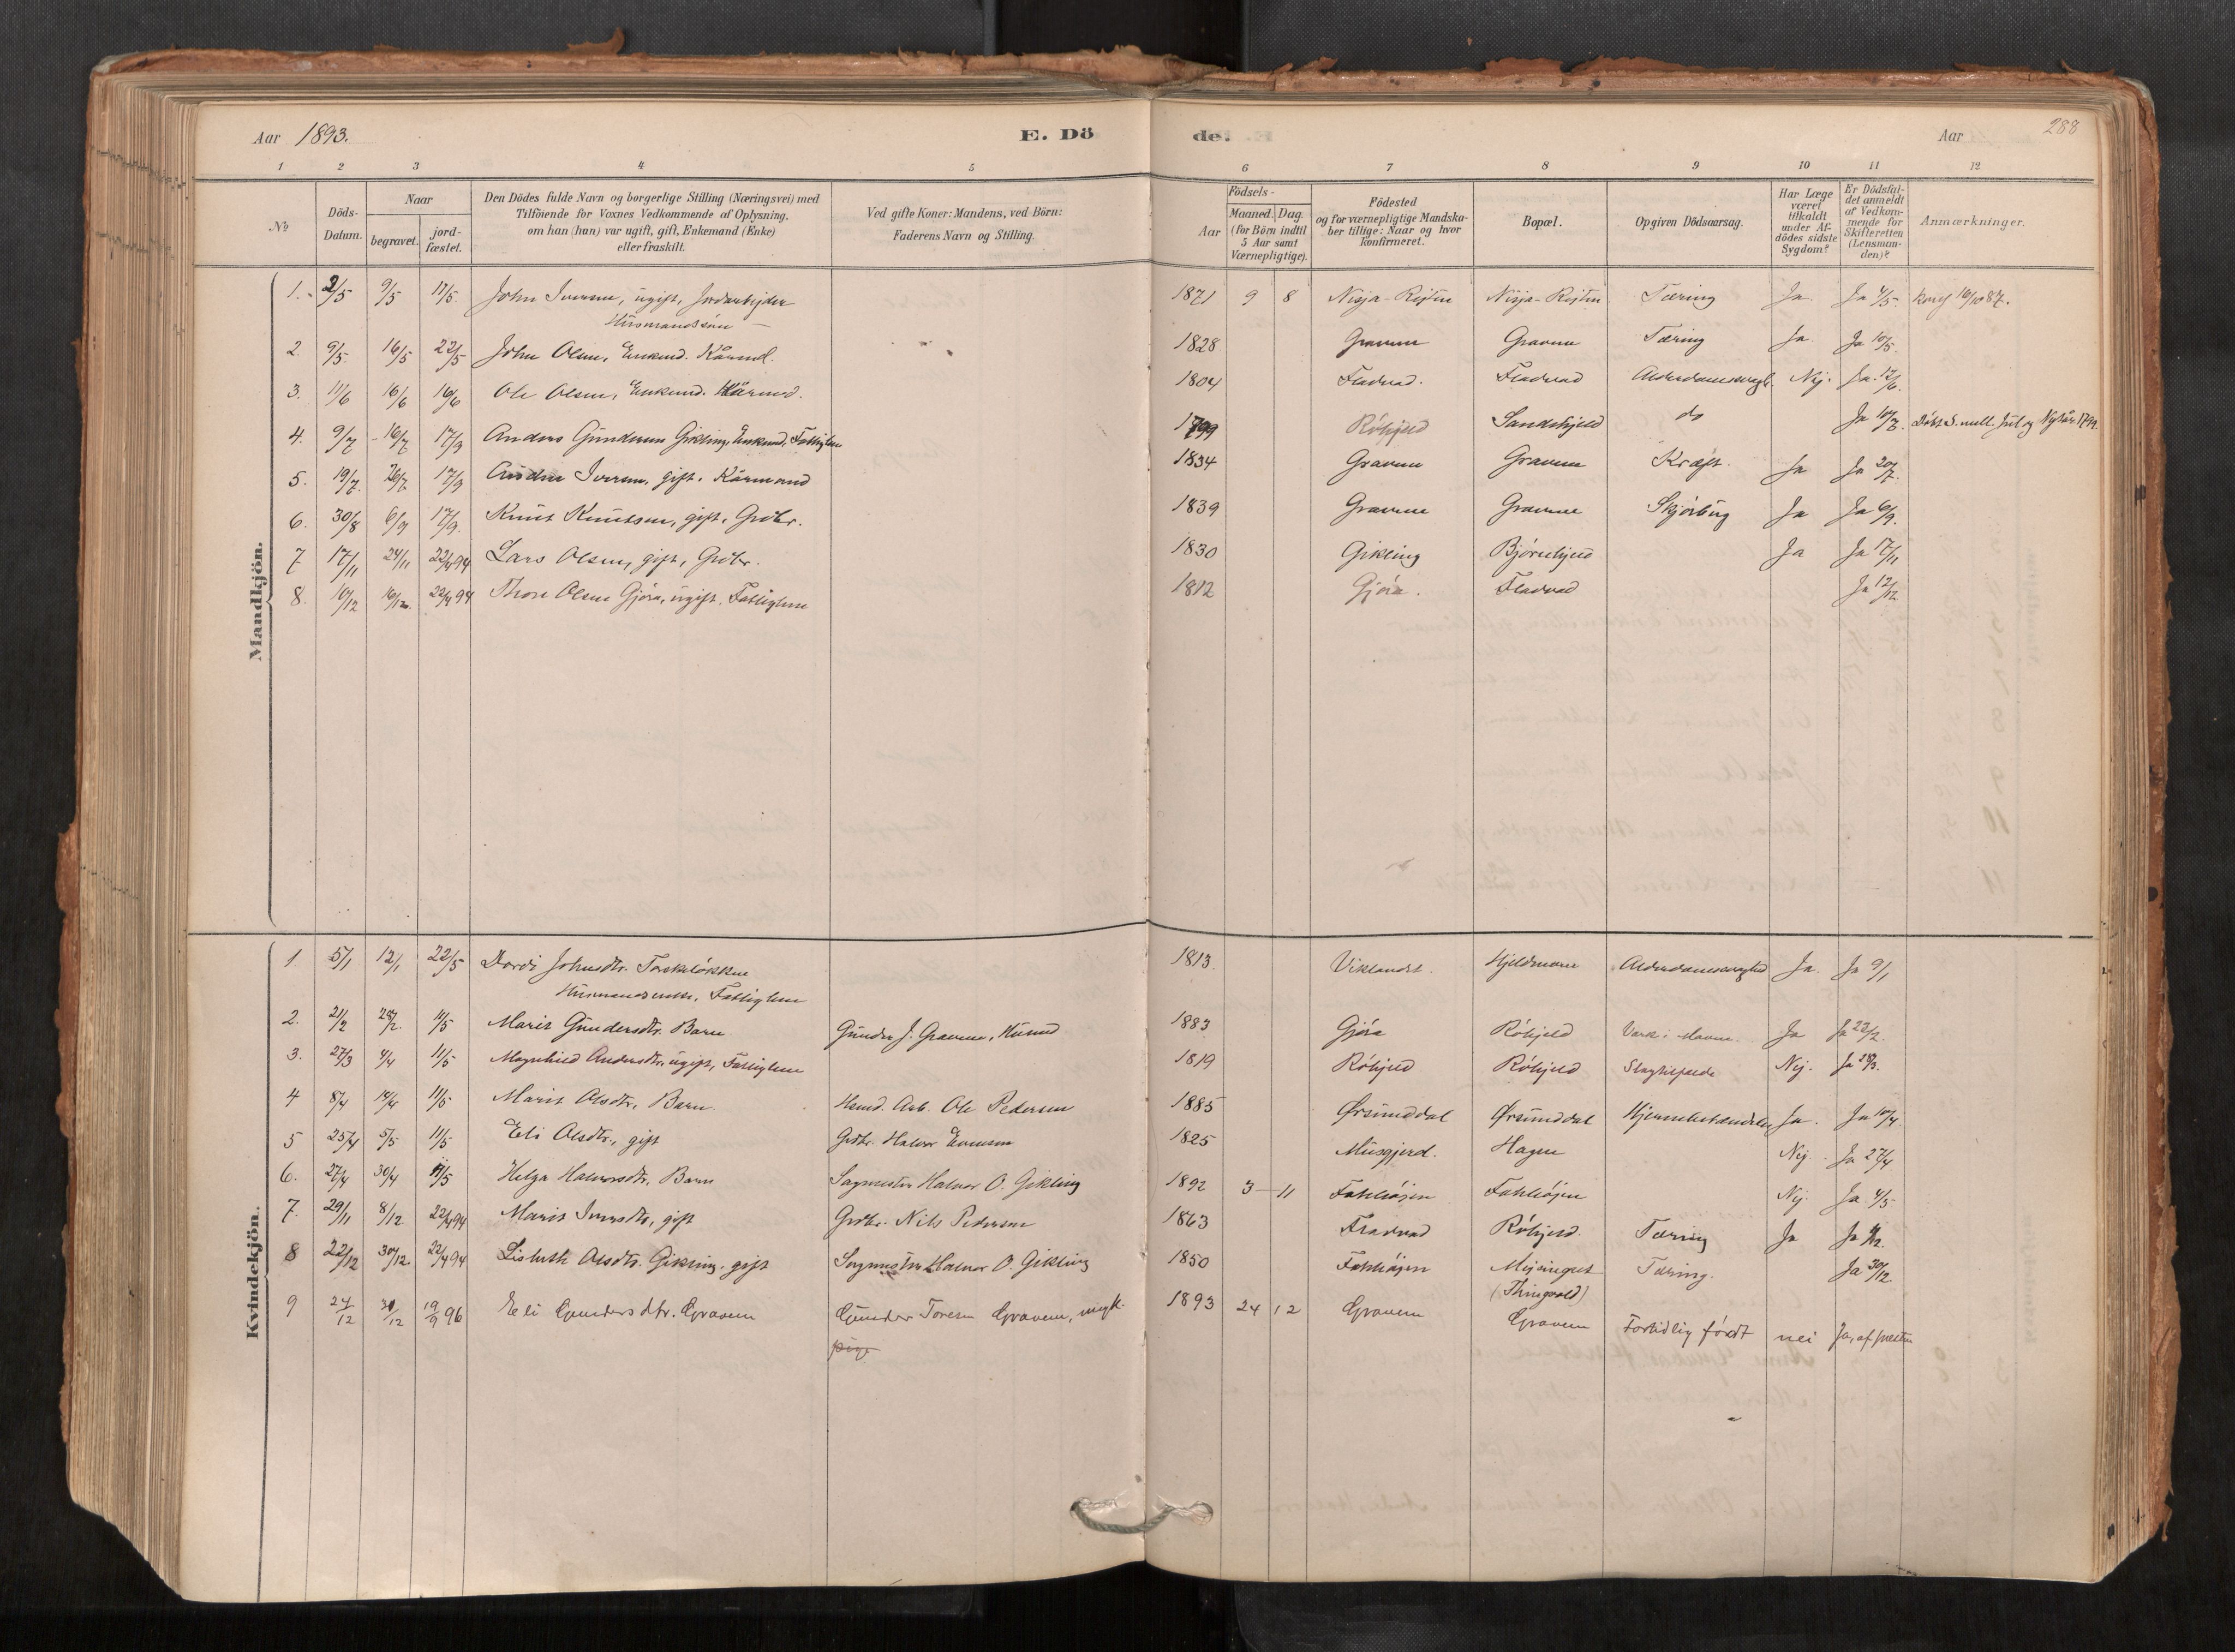 Aar 1893. E. Döde. Aar 288
1 2 3 4 5 6 7 8 9 10 11 12
No
Döds-Datum.
Naar
begravet.
jord-fæstet.
Den Dödes fulde Navn og borgerlige Stilling (Næringsvei) med
Tilföiende for Voxnes Vedkommende af Oplysning,
om han (hun) var ugift, gift, Enkemand (Enke)
eller fraskilt.
Ved gifte Koner: Mandens, ved Börn:
Faderens Navn og Stilling.
Födsels-
Aar
Maaned. Dag.
(for Börn indtil
5 Aar samt
Værnepligtige).
Födested
og for værnepligtige Mandska-
ber tillige: Naar og hvor
konfirmeret.
Bopæl.
Opgiven Dödsaarsag.
Har Læge
været
tilkaldt
under Af-
dödes sidste
Sygdom?
Er Dödsfal-
det anmeldt
af Vedkom-
mende for
Skifteretten
(Lensman-
den)?
Anmærkninger.
Mandkjön.
1. 2/5 9/5 17/5. John Iversen, ugift, Jordarbejder 1871 9 8 Nisja- Nisja- Tæring Ja. Ja 4/5. konf 16/10 87.
Husmandssøn
2. 9/5. 16/5 22/5 John Olsen, Enkemd. Kaarmd. 1828 Gravem Gravem Tæring Ja. Ja 10/5.
3. 11/6 16/6 16/6 Ole Olsen, Enkemd. Kårmd. 1804 Fladvad. Fladvad Alderdomssvagh. Nej. Ja. 12/6.
4. 9/7 16/7 17/9 Anders Gundersen Gikling, Enkemd, Fattiglem 1799 Röhjeld Sandshjeld do Ja 10/7. Döbt S. mell. Jul og Nytår 1799.
5. 19/7. 26/7 17/9 Iversen, gift. Kårmand 1834 Gravem Gravem Kræft. Ja Ja 20/7.
6. 30/8 6/9 17/9. Knut Knutsen, gift, Grdbr. 1839 Gravem Gravem Skjörbug Ja Ja 6/9.
7 17/11 24/11 22/4 94 Lars Olsen, gift, Grdbr. 1830 Gikling Bjørnhjeld Ja Ja 17/11
8. 10/12 16/12. 22/4 94 Thore Olsen Gjöra, ugift, Fattiglem 1812 Gjöra. Fladvad Ja 12/12
Kvindekjön.
1. 5/1 12/1 22/5 Dordi Johnsdtr. Torskelökken 1813. Viklandet. Hjeldmoen Alderdomssvaghed Ja. Ja 9/1
Husmandsenke, Fattiglem
2. 21/2 28/2. 11/5 Marit Gundersdtr. Barn Gunder J. Gravem, Husmd 1883 Gjöra Röhjeld Værk i Maven. Ja Ja 22/2.
3. 27/3 4/4 11/5 Magnhild Andersdtr. ugift, Fattiglem 1819 Röhjeld Röhjeld Slagtilfælde Nej. Ja 28/3.
4 8/4 14/4 11/5 Marit Olsdtr, Barn Hsmd. Arb. Ole Pedersen 1885 Ørsunddal Ørsunddal Hjernebetændelse Ja. Ja 10/4.
5 25/4 5/5 11/5 Eli Olsdtr, gift Grdbr. Halvor Evensen 1825 Musgjerd. Hagen Nej. Ja 27/4.
6. 27/4 30/4 11/5 Helga Halvorsdtr, Barn Sagmester Halvor O. Gikling 1892 3 11 Fahlhöjen Fahlhöjen Nej. Ja 4/5
7. 29/11 8/12 22/4 94 Marit Iversdtr, gift Grdbr. Nils Pedersen 1863 Fladvad Röhjeld. Tæring Ja
8 22/12 30/12. 22/4 94 Lisbeth Olsdtr. Gikling, gift Sagmester Halvor O. Gikling 1850 Fahlhöjen Mejsingset Tæring. Ja 30/12.
(Thingvold)
9 24/12 31/12 19/9 96 Eli Gundersdtr. Gravem Gunder Toresen Gravem, 1893 24 12 Gravem Gravem Fortidlig födt nei Ja, af præsten
pige